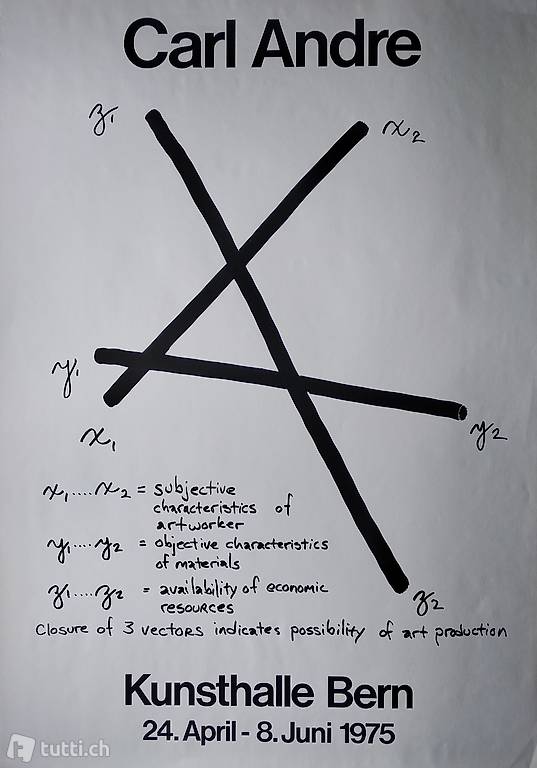 Carl Andre
z₁
x₂
y₁
x₁
y₂
x₁....x₂ = subjective
characteristics of
artworker
y₁....y₂ = objective characteristics
of materials
z₁....z₂ = availability of economic
resources
z₂
Closure of 3 vectors indicates possibility of art production
Kunsthalle Bern
24. April - 8. Juni 1975
tutti.ch